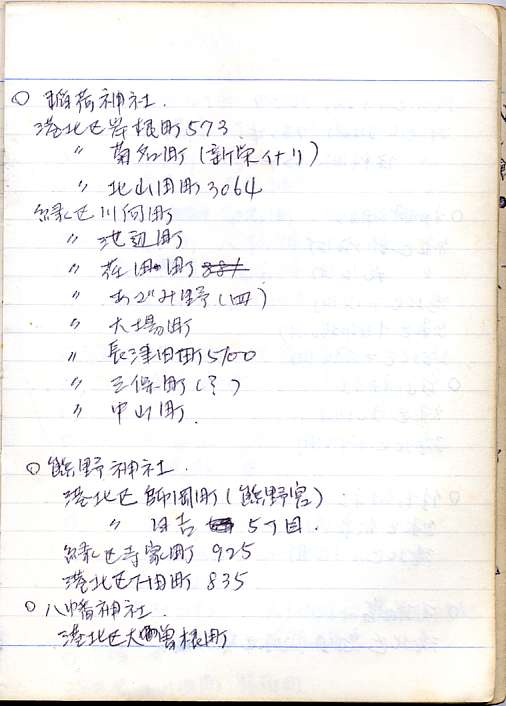 ○ 稲荷神社.
港北区岸根町573
〃 菊名町(新栄付リ)
〃 北山田町3064
緑区川向町
〃 池辺町
〃 荏田町 881
〃 あざみ野(四)
〃 大場町
〃 長津田町5700
〃 三保町(?)
〃 中山町.
○ 熊野神社.
港北区師岡町(熊野宮)
〃 日吉 5丁目.
緑区寺家町 925
港北区下田町 835
○ 八幡神社.
港北区大曽根町